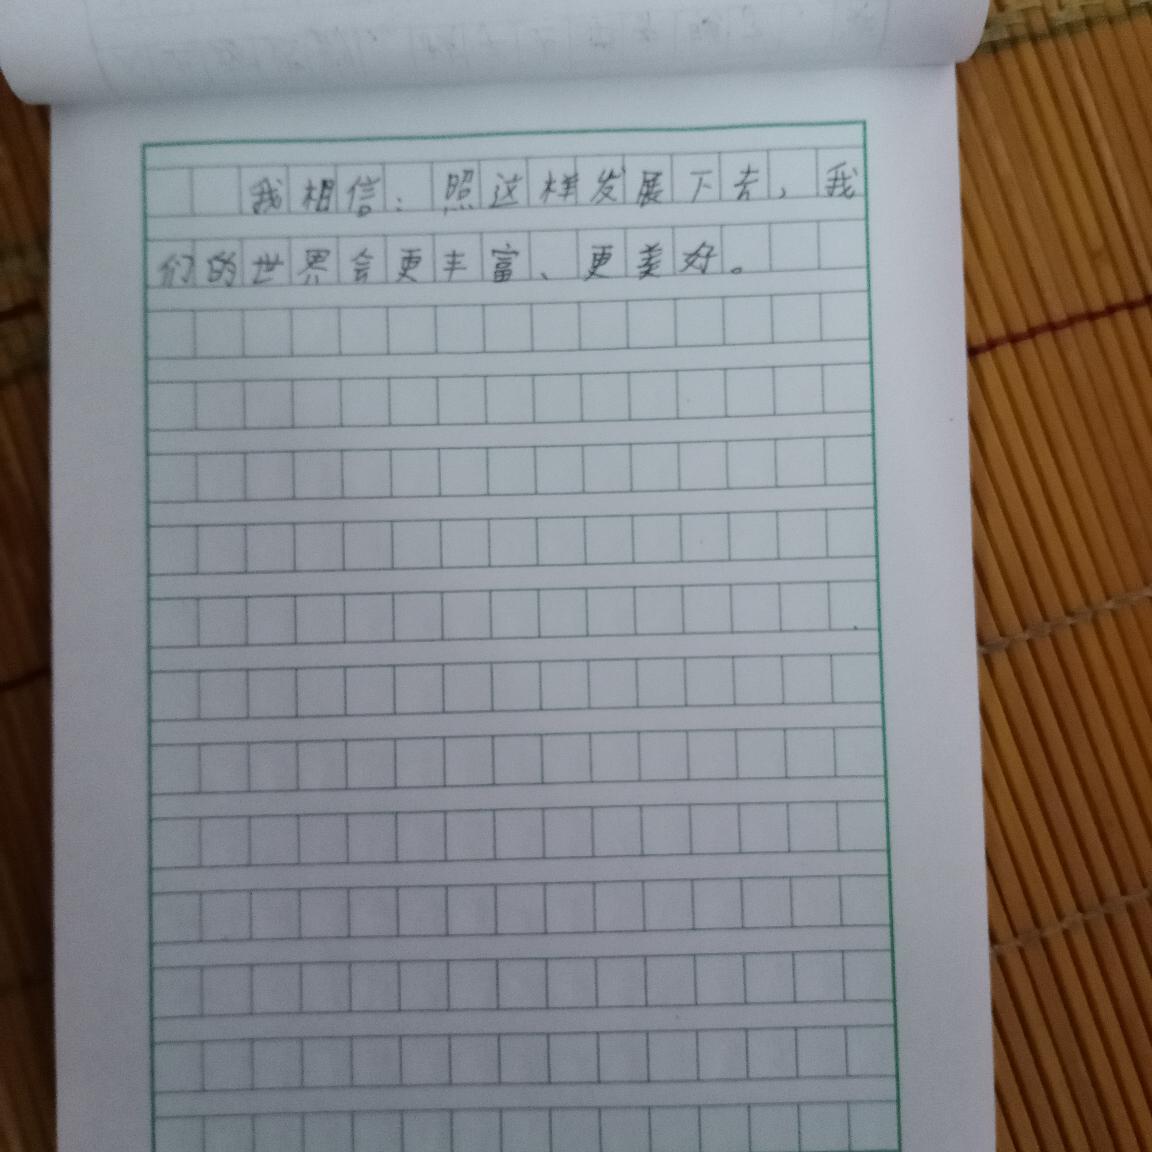 我相信：照这样发展下去，我
们的世界会更丰富、更美好。